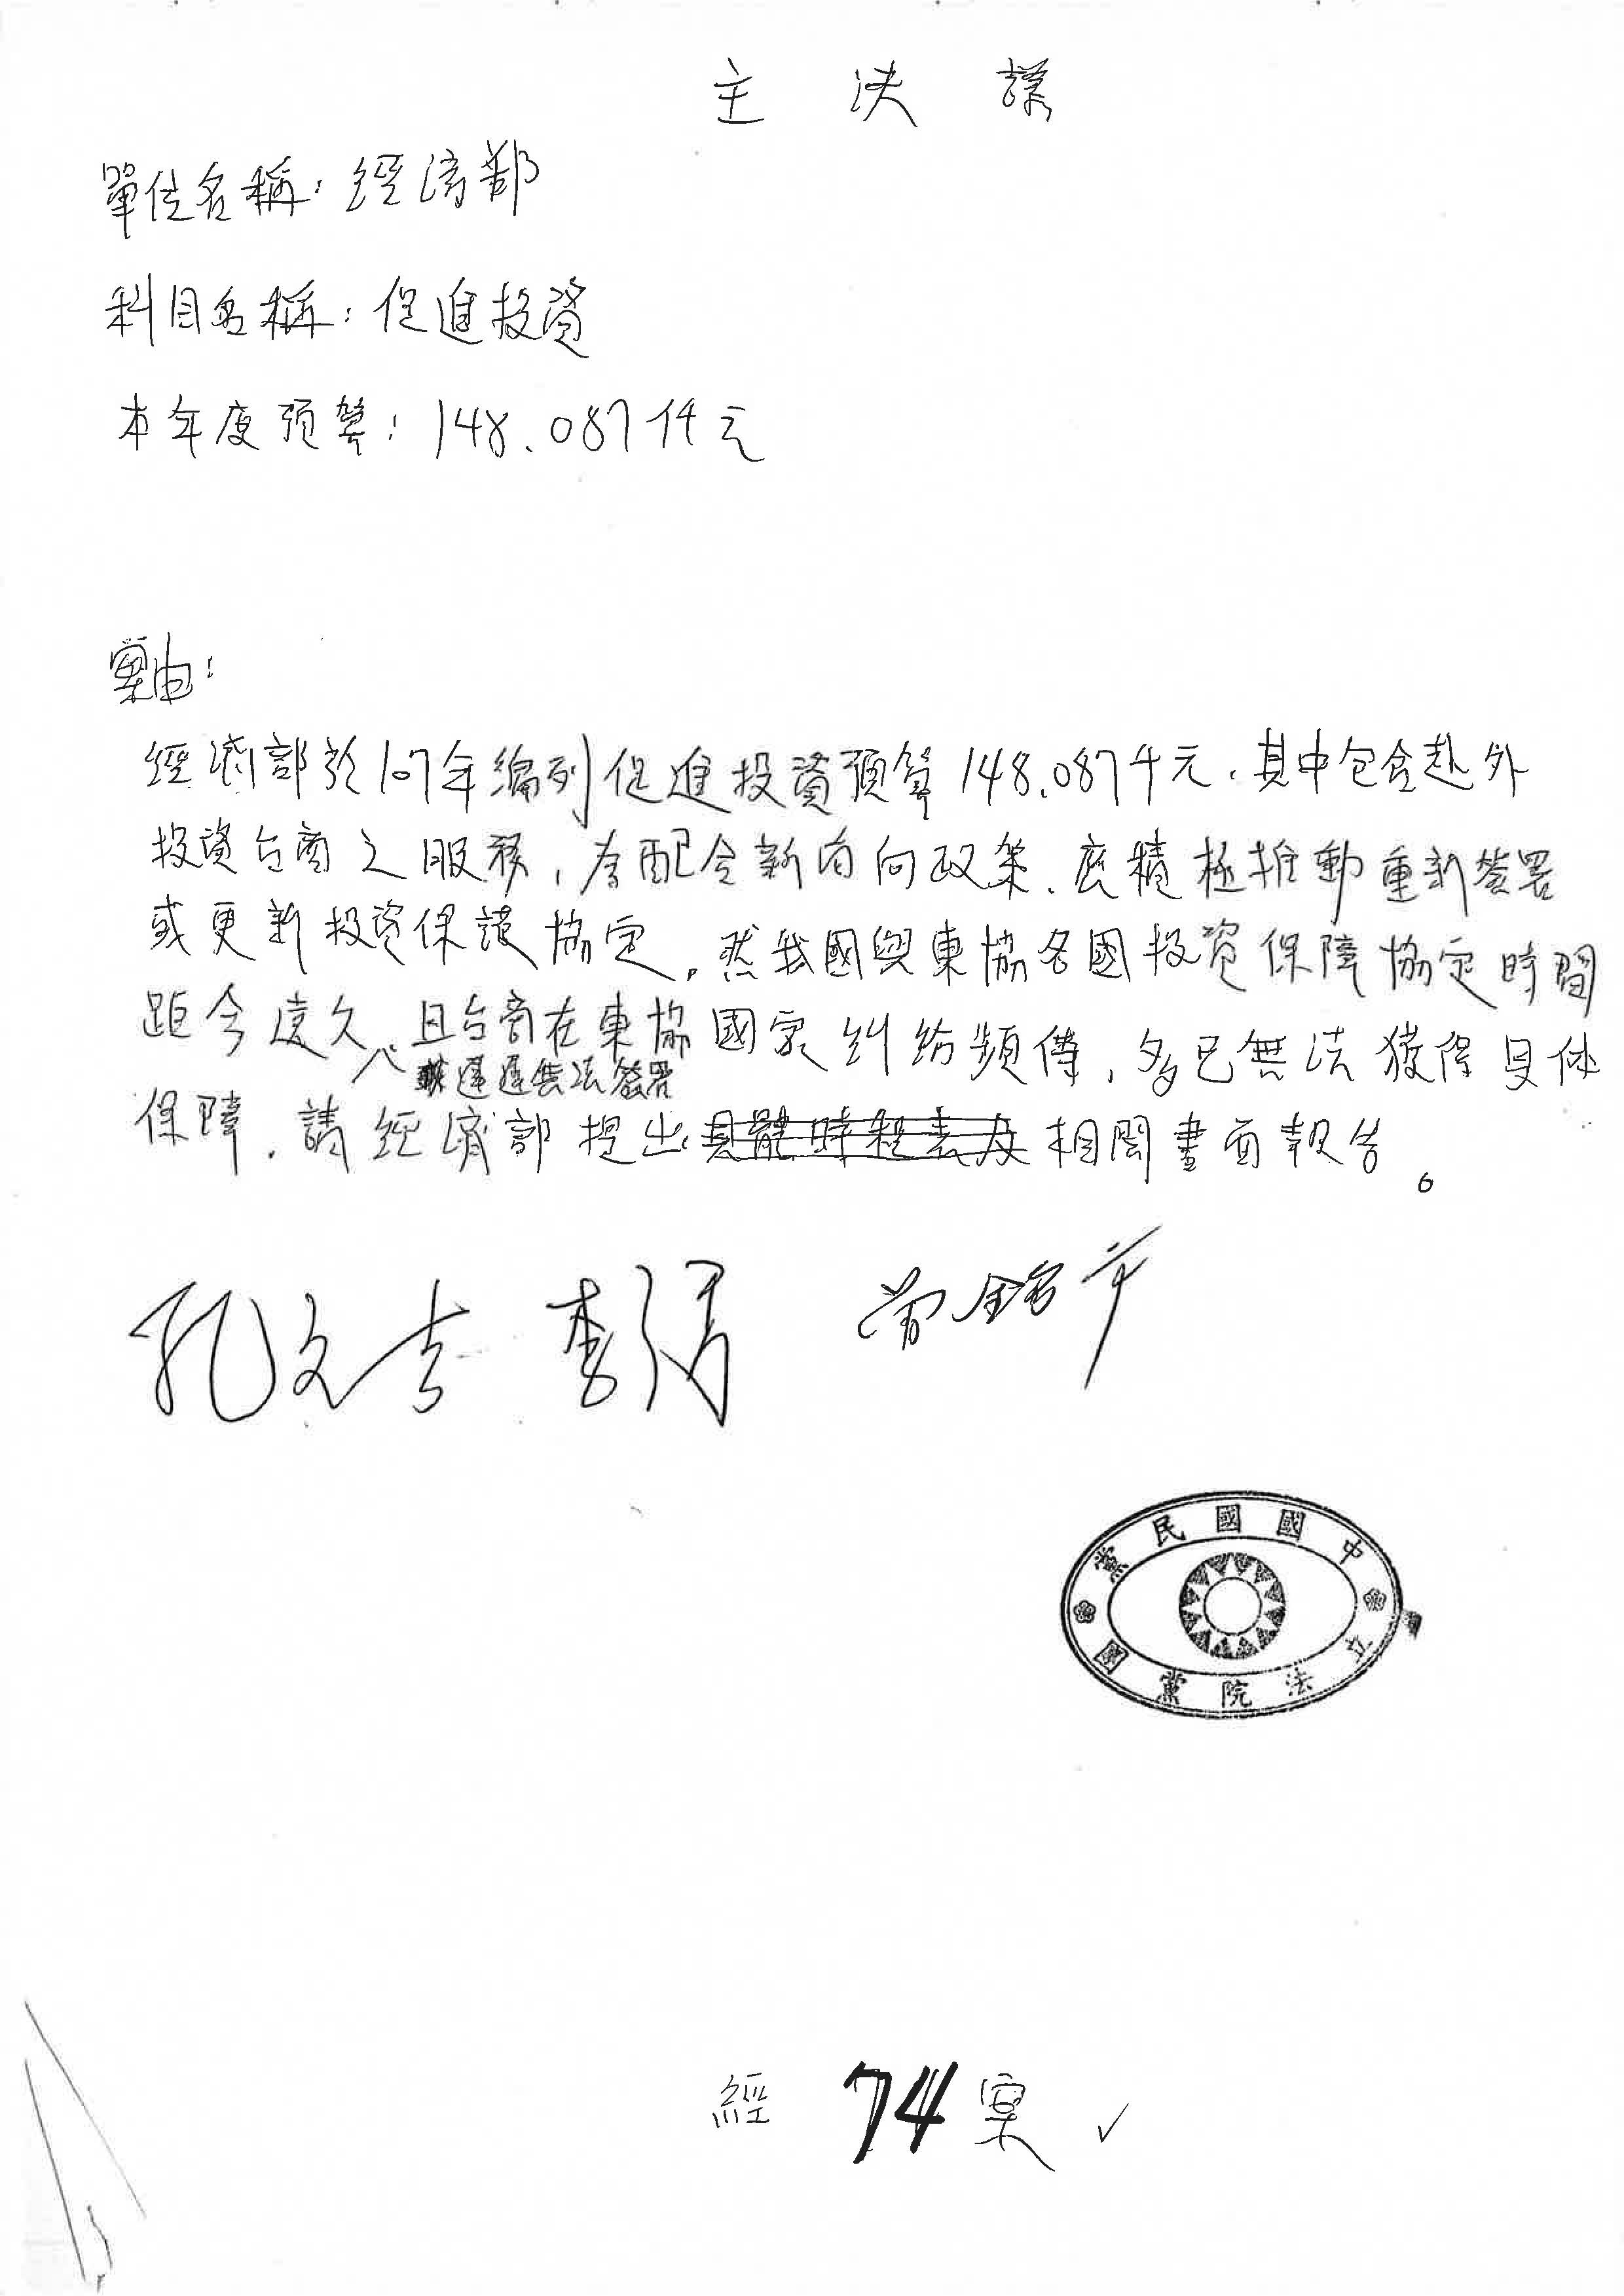 主決議
單位名稱：經濟部
科目名稱：促進投資
本年度預算：148.087仟元
案由：
經濟部於107年編列促進投資預算148.087千元，其中包含赴外
投資台商之服務，為配合新南向政策，應積極推動重新簽署
或更新投資保護協定。然我國與東協各國投資保障協定時間
距今遠久，且台商在東協國家糾紛頻傳，多已無法獲得具体
遲遲無法簽署
保障，請經濟部提出具體時程表及相關書面報告。
孔文吉 曾銘宗
中國國民黨
立法院黨團
經 74 案 ✓